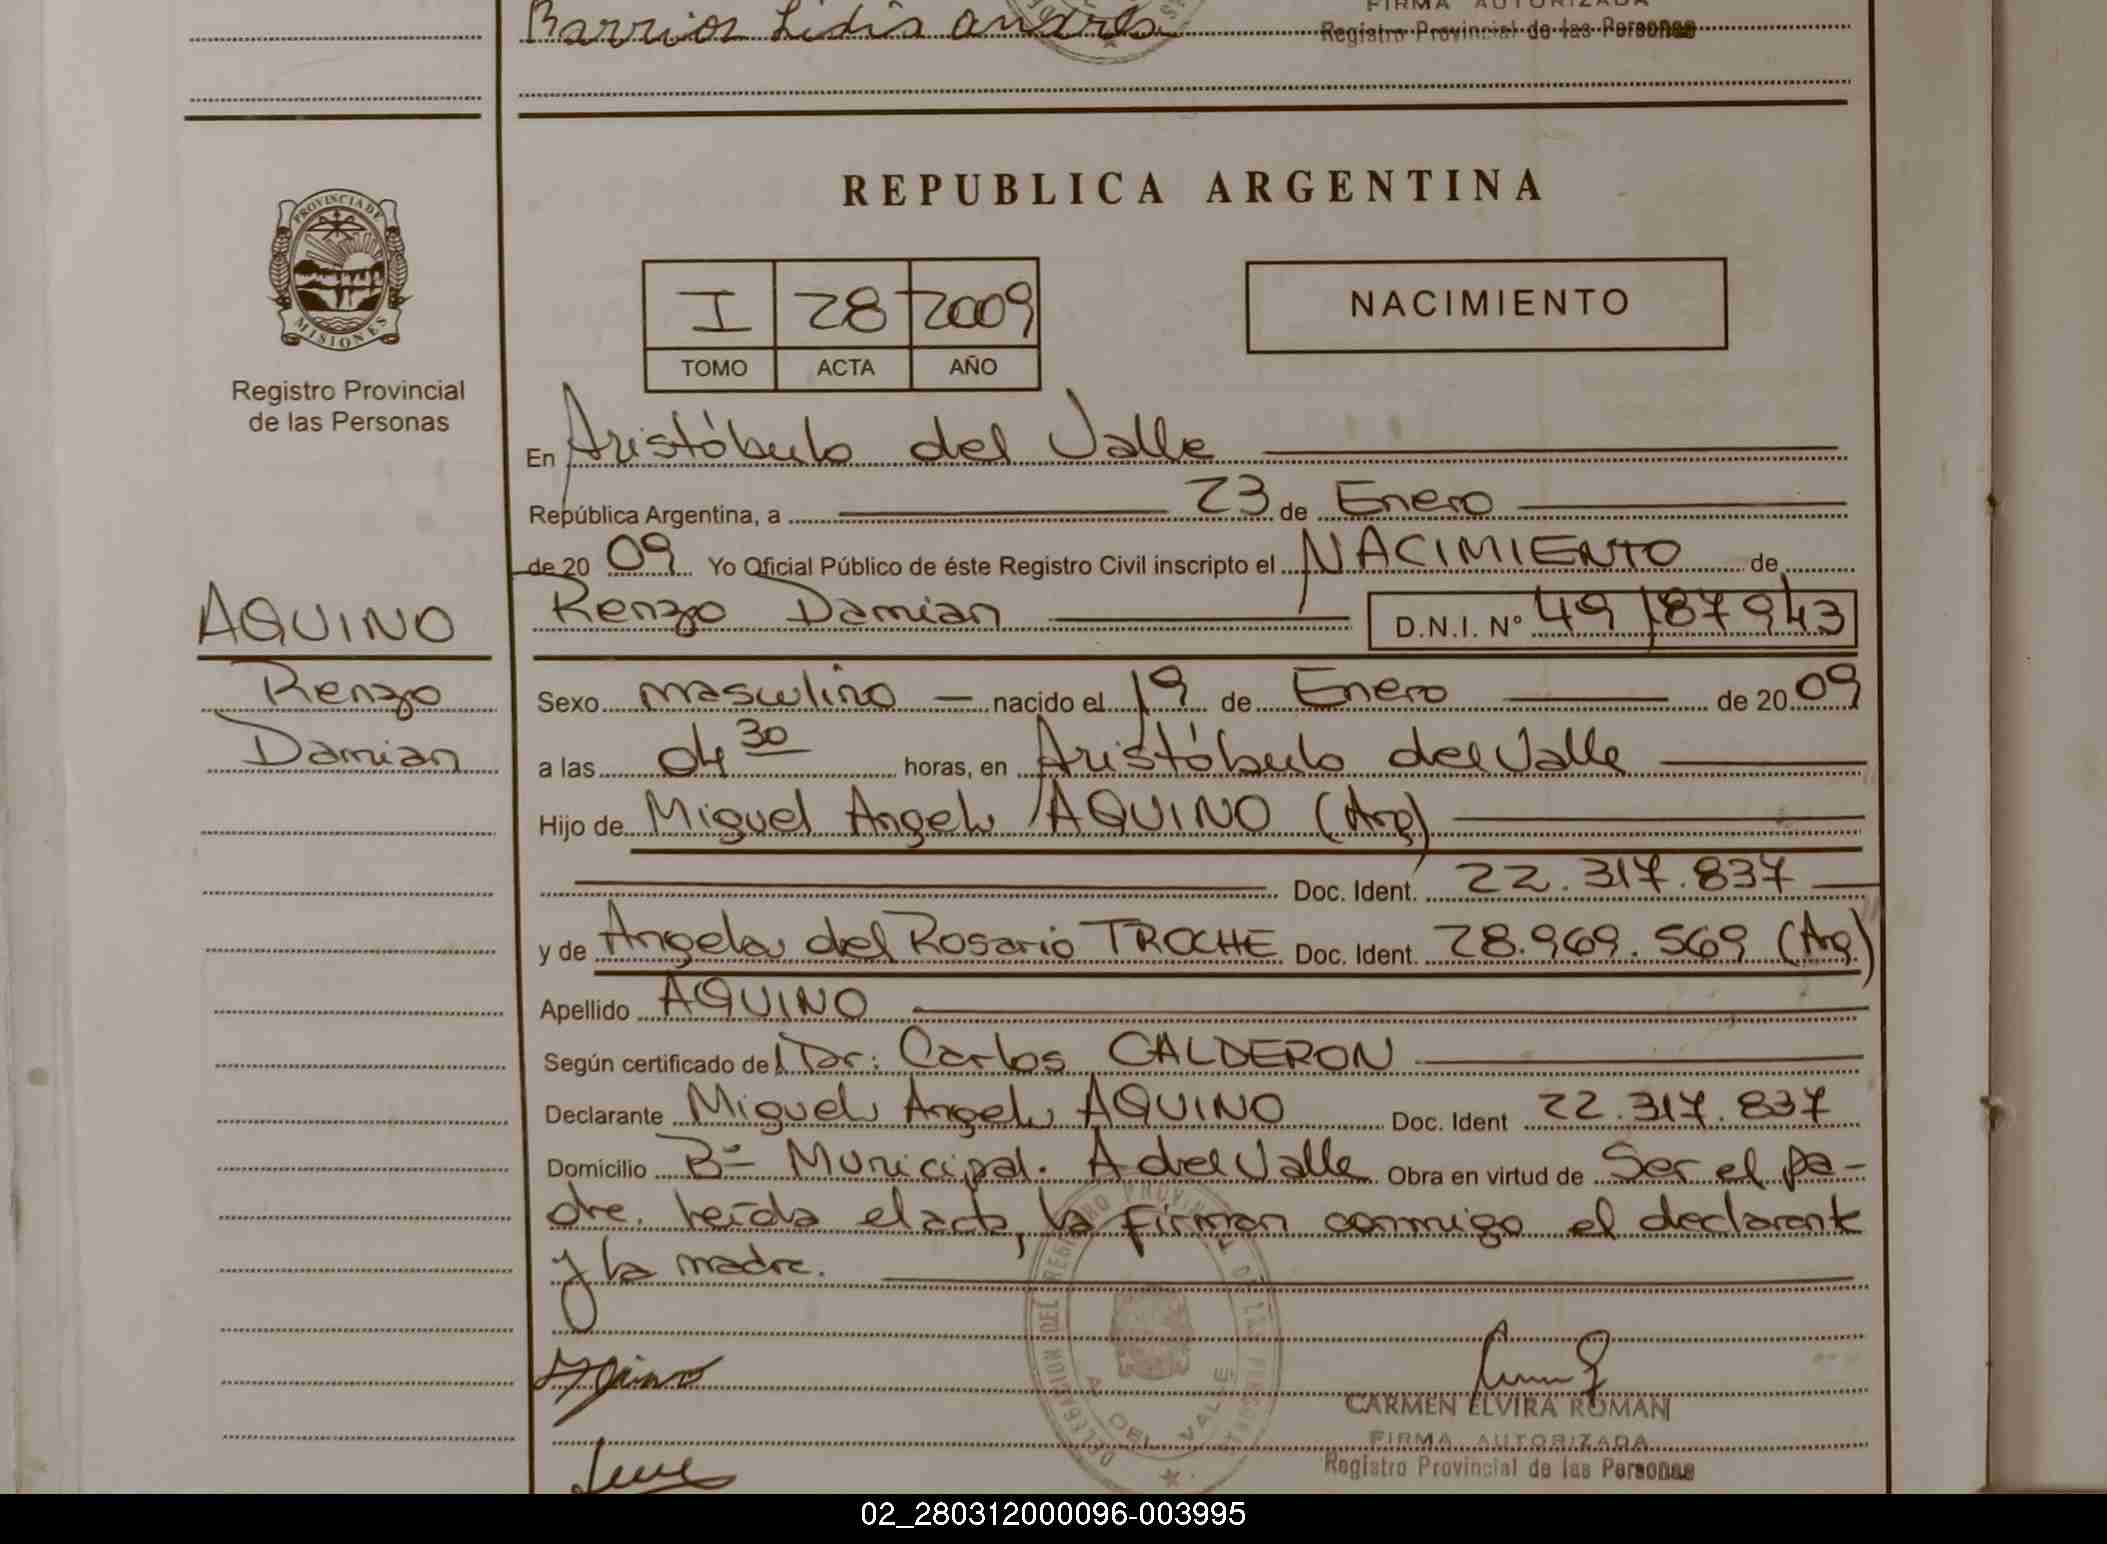 Barrios Lidis
FIRMA AUTORIZADA
Registro Provincial de las Personas
REPUBLICA ARGENTINA
PROVINCIA DE
MISIONES
Registro Provincial
de las Personas
I 28 2009
TOMO ACTA AÑO
NACIMIENTO
En Aristóbulo del Valle
República Argentina, a 23 de Enero
de 20 09 Yo Oficial Público de éste Registro Civil inscripto el NACIMIENTO de
AQUINO
Renzo Damian D.N.I. N° 49187943
Renzo
Damian
Sexo masculino nacido el 19 de Enero de 20 09
a las 04 30 horas, en Aristóbulo del Valle
Hijo de Miguel Angel AQUINO (Arg)
Doc. Ident. 22.317.837
y de Angela del Rosario TROCHE Doc. Ident. 28.969.569 (Arg)
Apellido AQUINO
Según certificado del Dr: Carlos CALDERON
Declarante Miguel Angel AQUINO Doc. Ident 22.317.837
Domicilio Bº Municipal. A del Valle Obra en virtud de Ser el pa-
dre. leída el acta, la firman conmigo el declarante
y la madre.
DELEGACION DEL REGISTRO PROVINCIAL DE LAS PERSONAS
A. DEL VALLE
CARMEN ELVIRA ROMAN
FIRMA AUTORIZADA
Registro Provincial de las Personas
02_280312000096-003995